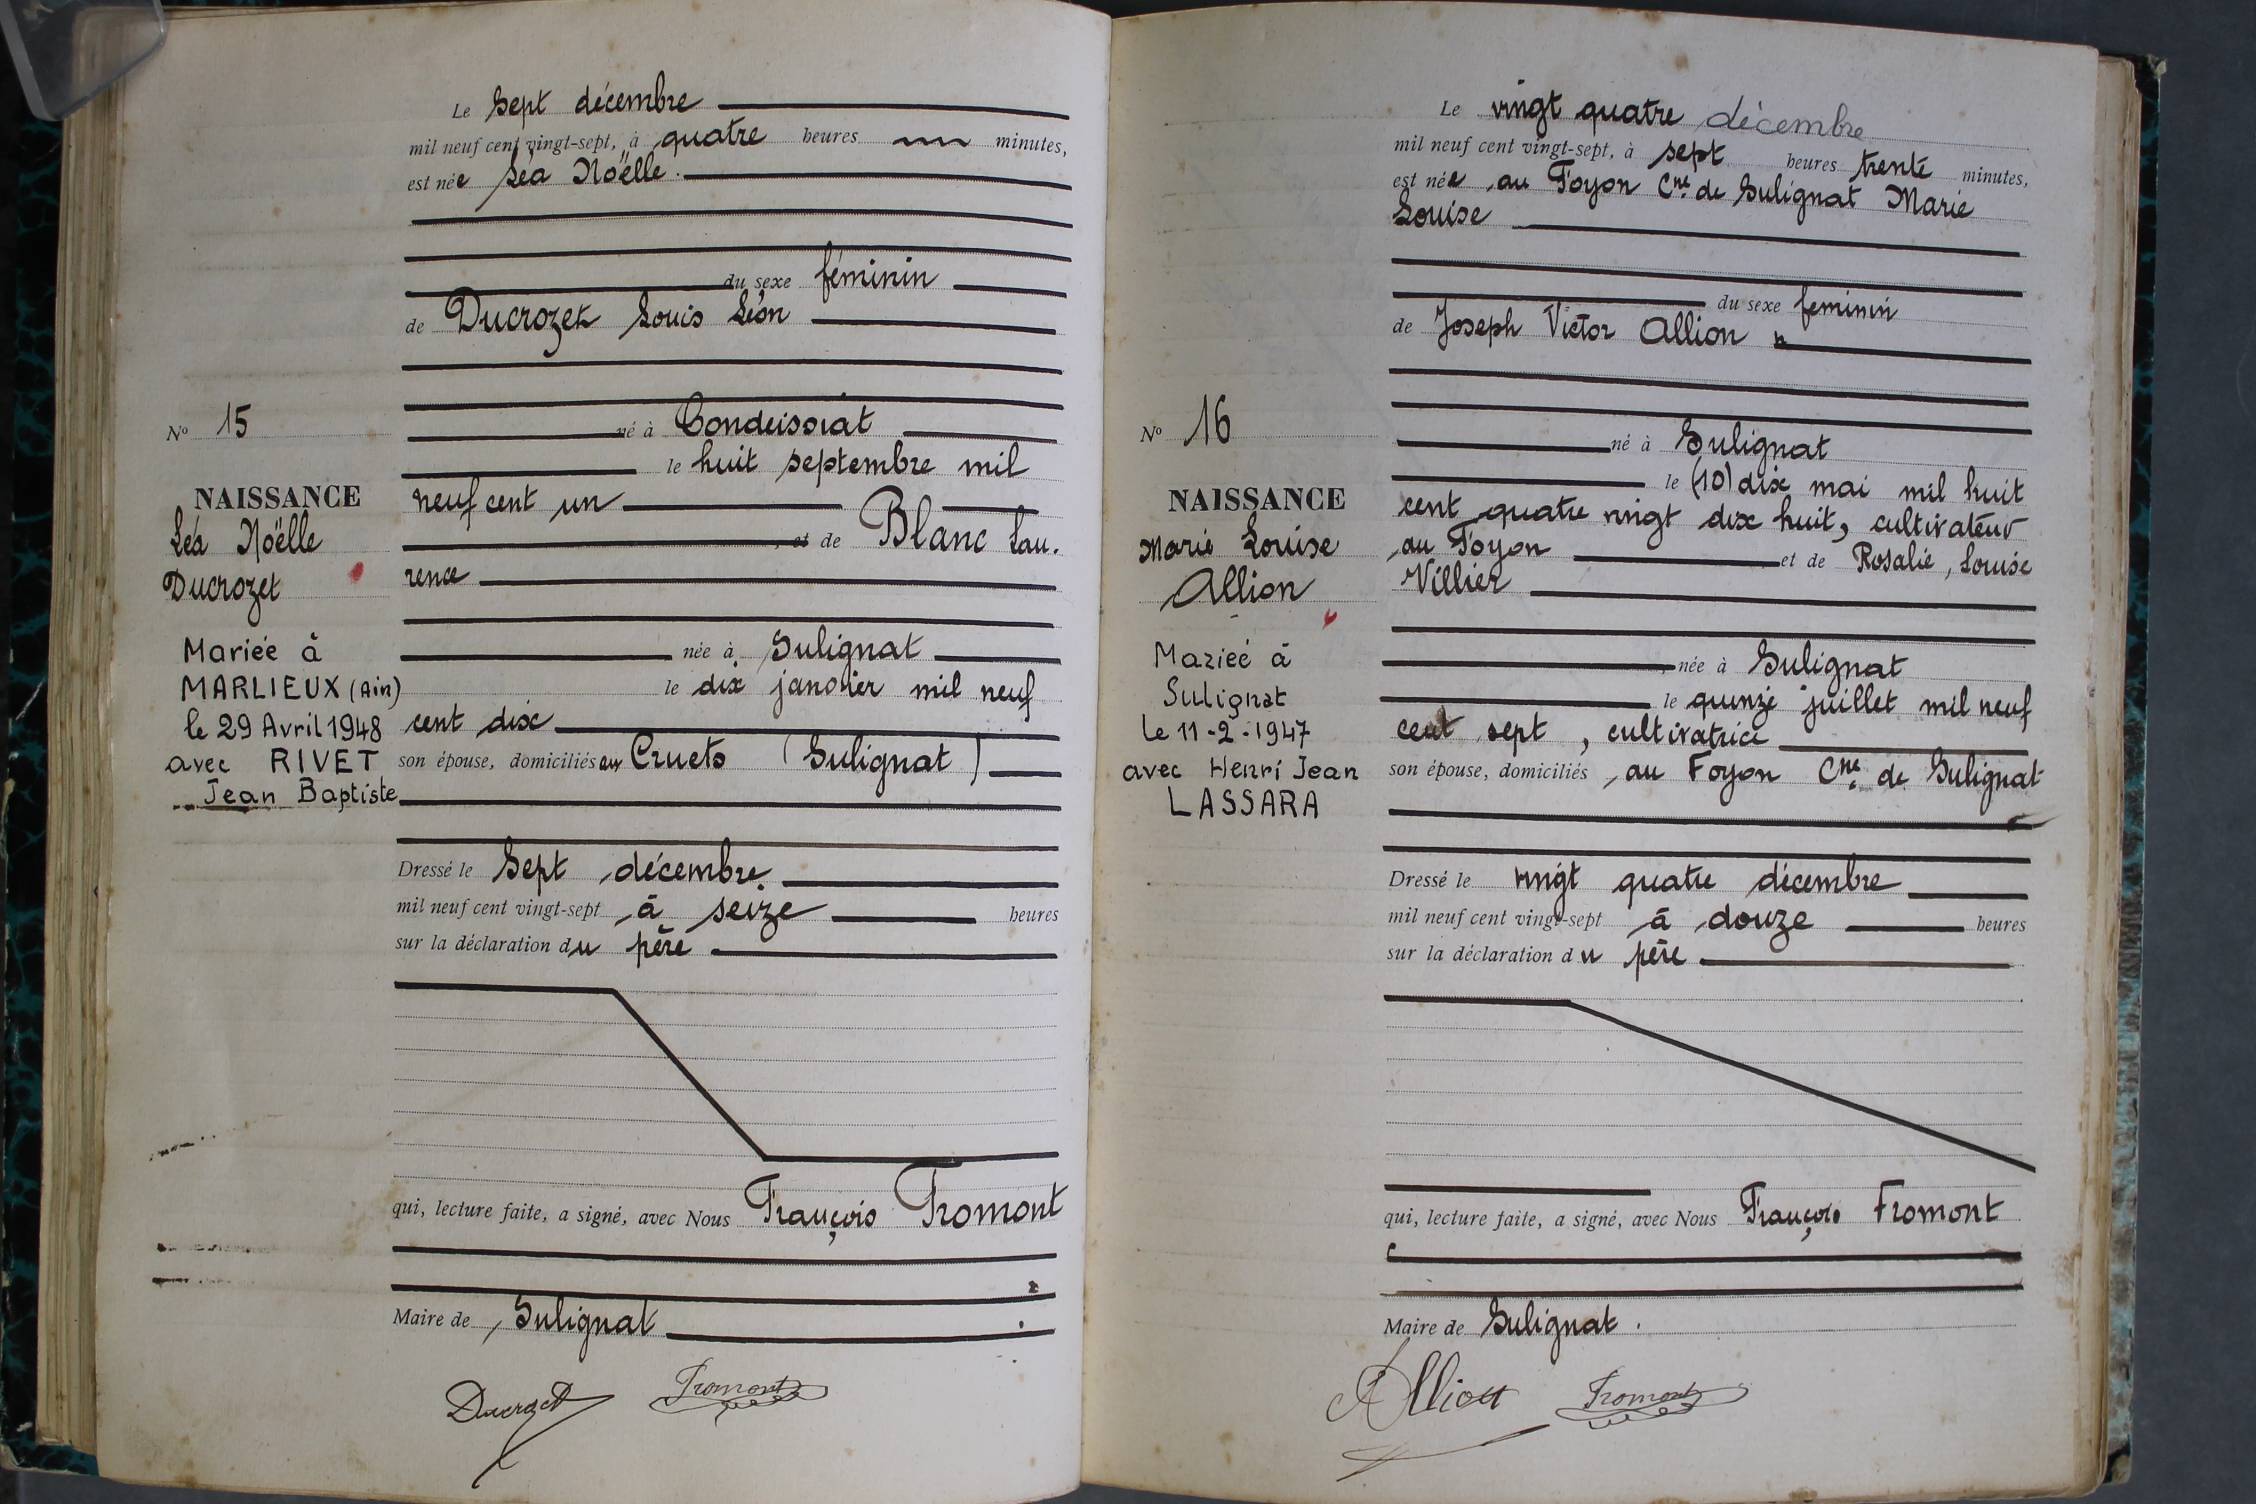 Le Sept décembre
mil neuf cent vingt-sept, à quatre heures minutes,
est née Léa Noëlle.
du sexe féminin
de Ducrozet Louis Léon
né à Condeissiat
le huit septembre mil
neuf cent un
, et de Blanc Lau.
rence
née à Sulignat
le dix janvier mil neuf
cent dix
son épouse, domiciliés aux Cruets (Sulignat)
Dressé le Sept décembre
mil neuf cent vingt-sept à seize heures
sur la déclaration du père
qui, lecture faite, a signé, avec Nous François Fromont
Maire de Sulignat
Ducrozet Fromont
No 15
NAISSANCE
Léa Noëlle
Ducrozet
Mariée à
MARLIEUX (Ain)
le 29 Avril 1948
avec RIVET
Jean Baptiste
Le vingt quatre décembre
mil neuf cent vingt-sept, à sept heures trente minutes,
est née au Foyon Cne de Sulignat Marie
Louise
du sexe feminin
de Joseph Victor Allion
né à Sulignat
le (10) dix mai mil huit
cent quatre vingt dix huit, cultivateur
au Foyon et de Rosalie, Louise
Villier
née à Sulignat
le quinze juillet mil neuf
cent sept, cultivatrice
son épouse, domiciliés au Foyon Cne de Sulignat
Dressé le vingt quatre décembre
mil neuf cent vingt-sept à douze heures
sur la déclaration du père
qui, lecture faite, a signé, avec Nous François Fromont
Maire de Sulignat.
Allion Fromont
No 16
NAISSANCE
Marie Louise
Allion
Mariée à
Sulignat
le 11-2-1947
avec Henri Jean
LASSARA